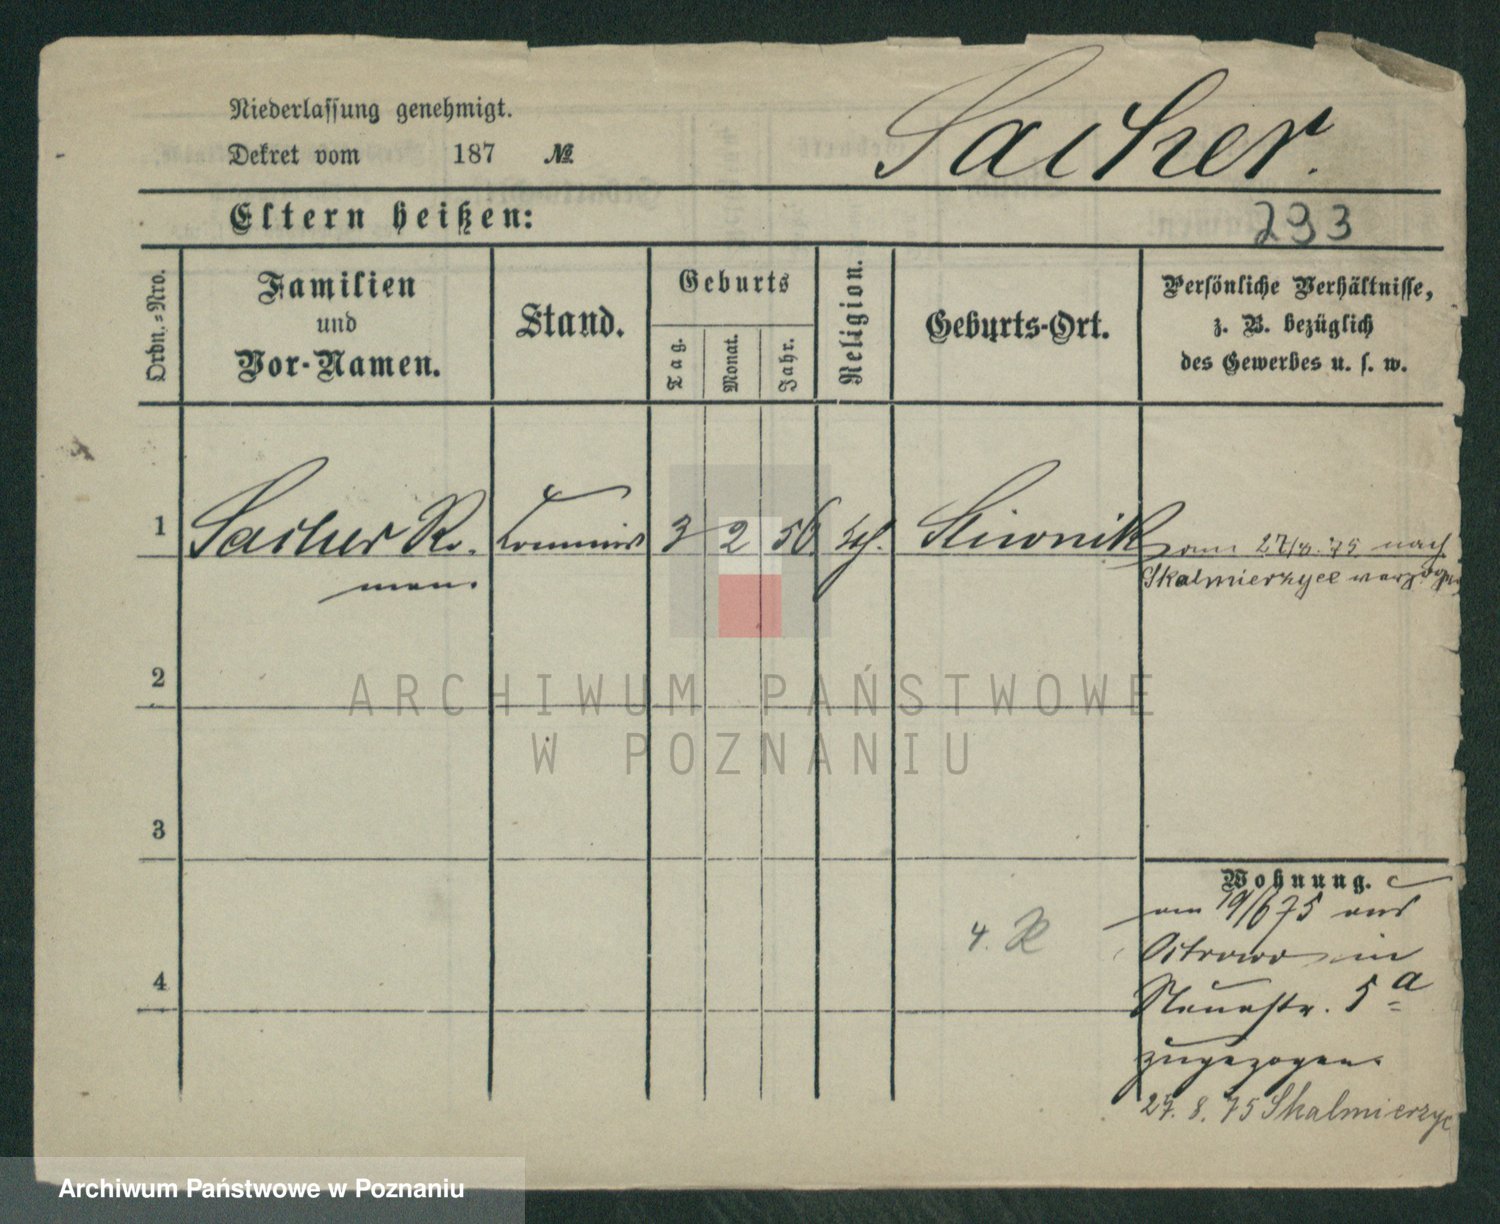 Niederlassung genehmigt.
Dekret vom 187 №
Sacher.
Eltern heißen:
293
Ordn.-Nro.
Familien
und
Vor-Namen.
Stand.
Geburts
Tag.
Monat.
Jahr.
Religion.
Geburts-Ort.
Persönliche Verhältnisse,
z. B. bezüglich
des Gewerbes u. s. w.
1 Sacher Ro- Commis 3 2 56 Sliwnik am 27/8. 75 nach
man. Skalmierzyce verzogen
2
ARCHIWUM PAŃSTWOWE
W POZNANIU
3
Wohnung.
am 19/6 75 aus
4. Ostrowo in
4
Neuestr. 5 a
zugezogen.
27. 8. 75 Skalmierzyc
Archiwum Państwowe w Poznaniu